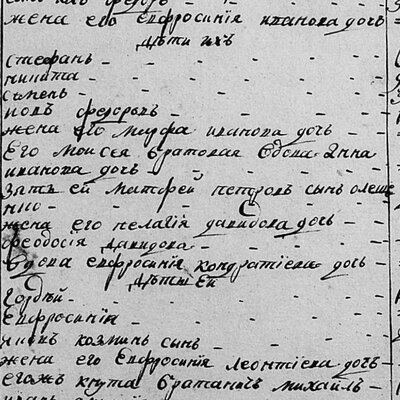 жена его Евфросинiя иванова дочь
дѣти ихъ
Стефанъ
никита
Сѣменъ
яковъ федоровъ
жена его марфа иванова дочь
Его Моисея братовая вдова Анна
иванова дочь
Зять ей Матфей петровъ сынъ
жена его пелагiя давидова дочь
феодосiя давидова
вдова евфросинiя кондратiева дочь
дѣти Ей
Гордѣй
Евфросинiя
яковъ козминъ сынъ
жена его Евфросинiя леонтiева дочь
егожъ кнута братаничъ михайлъ